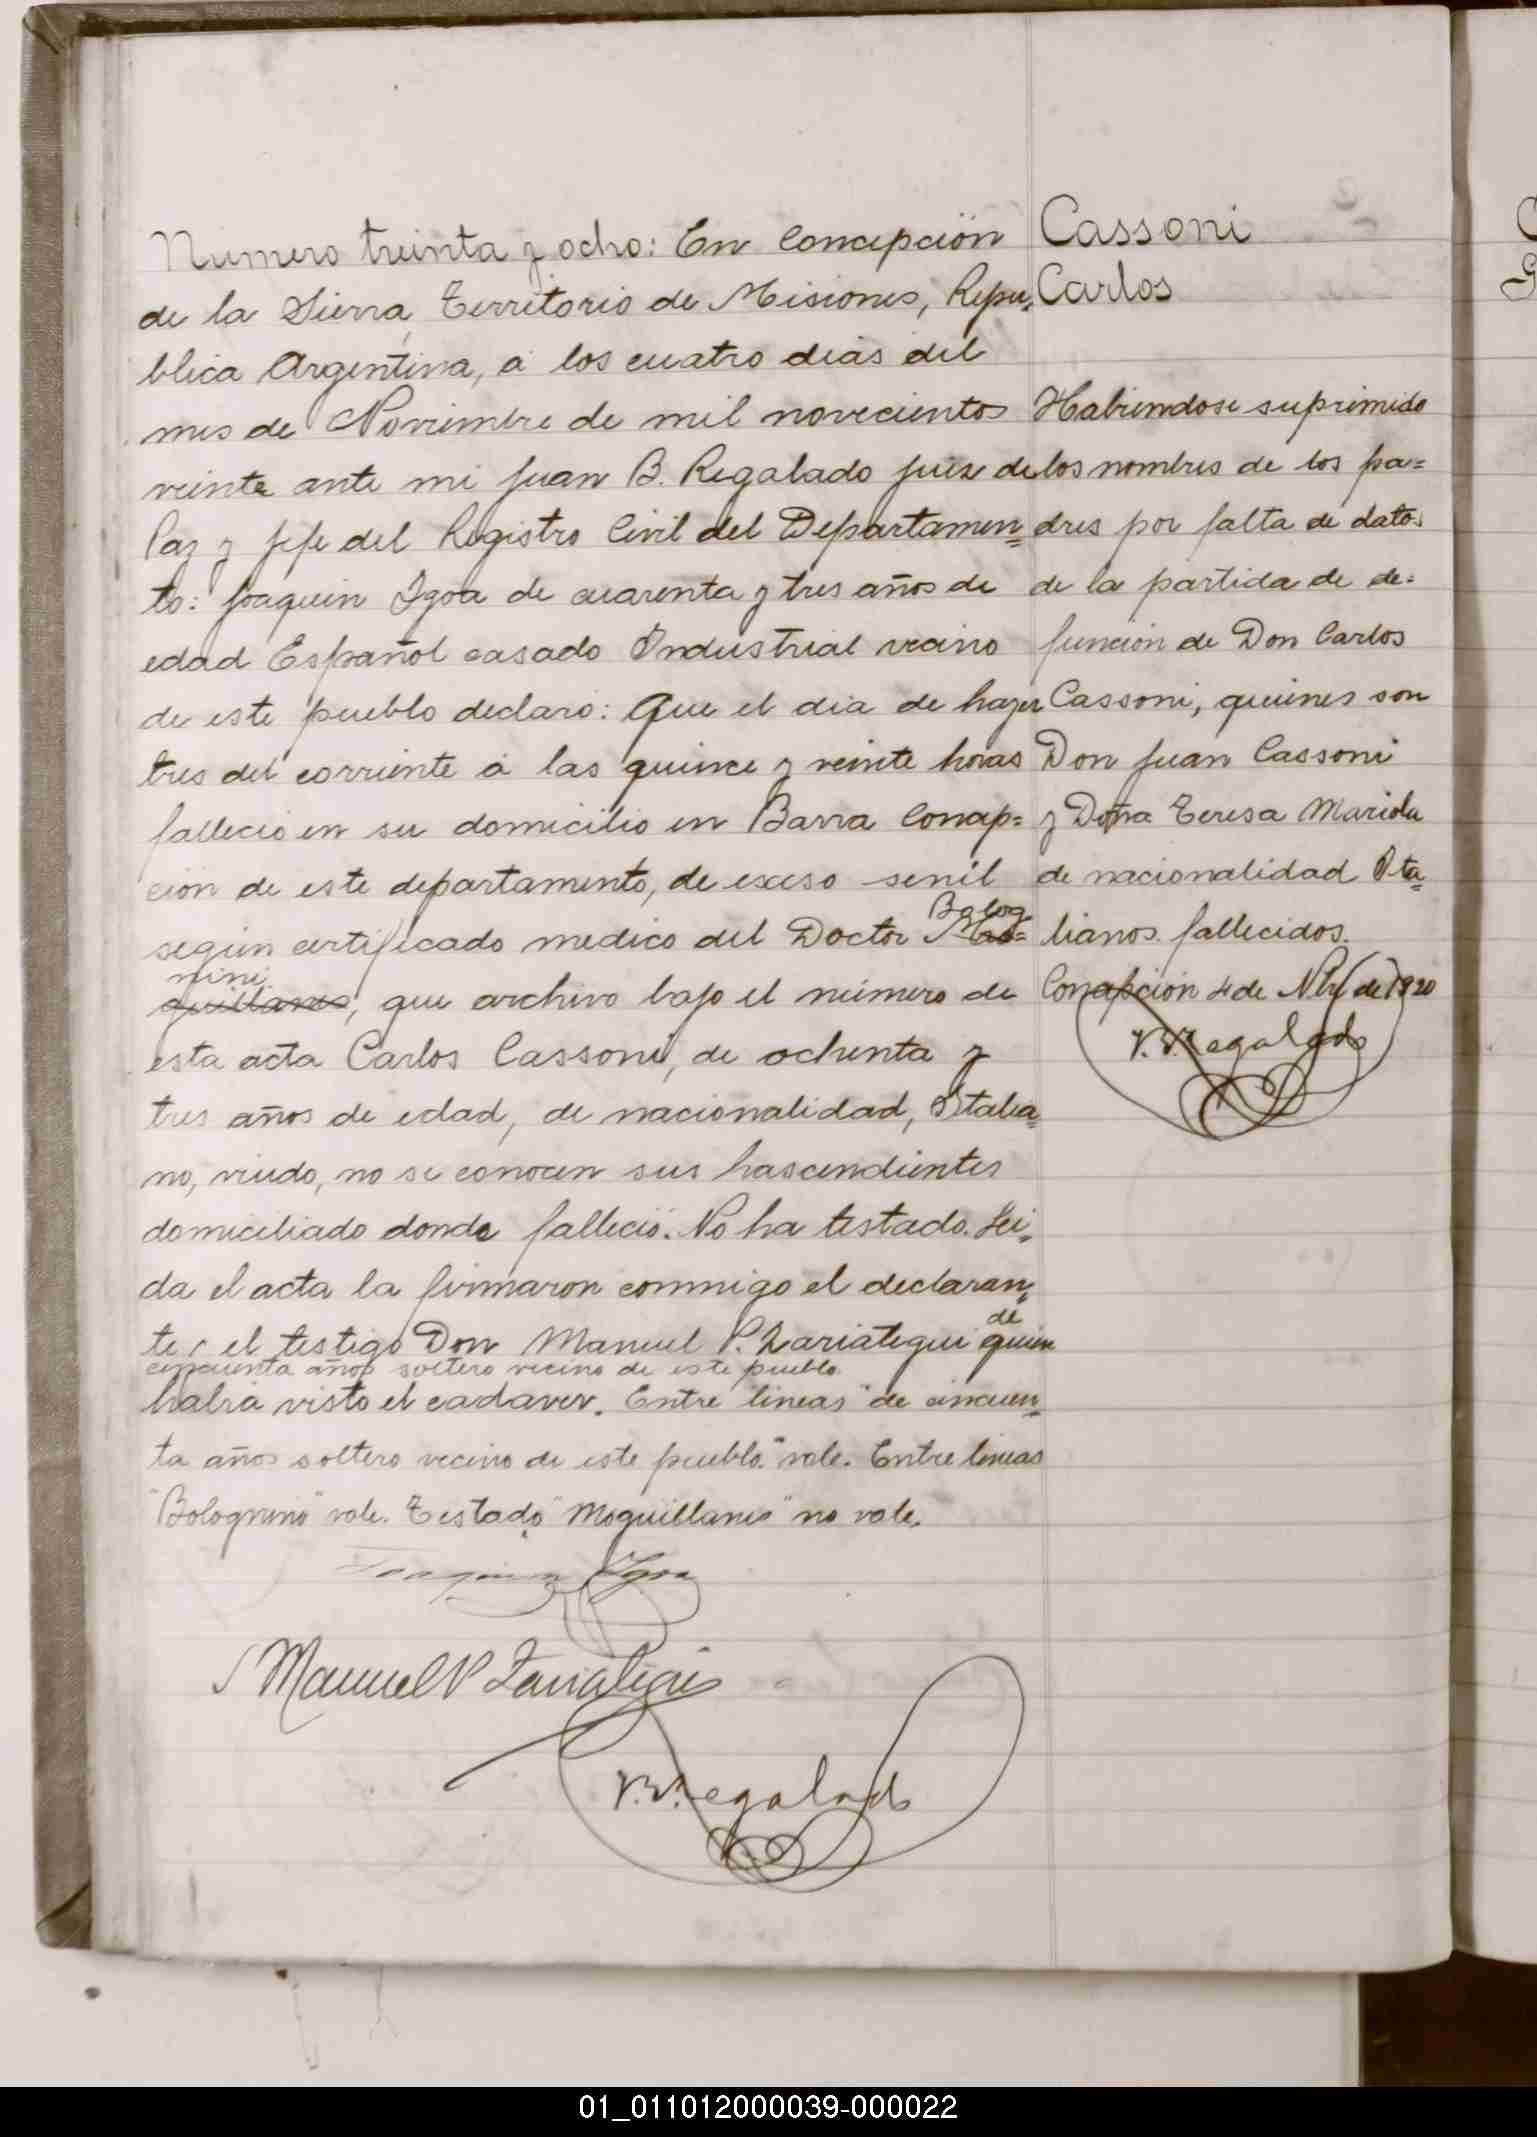 Numero treinta y ocho: En Concepción
de la Sierra, Territorio de Misiones, Repu=
blica Argentina, á los cuatro dias del
mes de Noviembre de mil novecientos
veinte ante mi Juan B. Regalado Juez de
Paz y Jefe del Registro Civil del Departamen=
to: Joaquin Igoa de cuarenta y tres años de
edad Español casado Industrial vecino
de este pueblo declaró: Que el dia de hayer
tres del corriente á las quince y veinte horas
falleció en su domicilio en Barra Concep=
ción de este departamento, de exceso senil
Bolog
según certificado medico del Doctor Mo=
nini
quillanes, que archivo bajo el número de
esta acta Carlos Cassoni, de ochenta y
tres años de edad, de nacionalidad, Italia=
no, viudo, no se conocen sus hascendientes
domiciliado donde falleció. No ha testado. Lei=
da el acta la firmaron conmigo el declaran=
de
te y el testigo Don Manuel P. Lariategui quien
cincuenta años soltero vecino de este pueblo
habia visto el cadaver. Entre lineas "de cincuen=
ta años soltero vecino de este pueblo" vale. Entre lineas
"Bolognini" vale. Testado "Moquillanes" no vale.
Joaquin Igoa
Manuel P Lariategui
J.B.Regalado
Cassoni
Carlos
Habiendose suprimido
los nombres de los pa=
dres por falta de datos
de la partida de de=
función de Don Carlos
Cassoni, quienes son
Don Juan Cassoni
y Doña Teresa Mariola
de nacionalidad Ita=
lianos fallecidos.
Concepción 4 de Nbre de 1920
J.B.Regalado
01_011012000039-000022